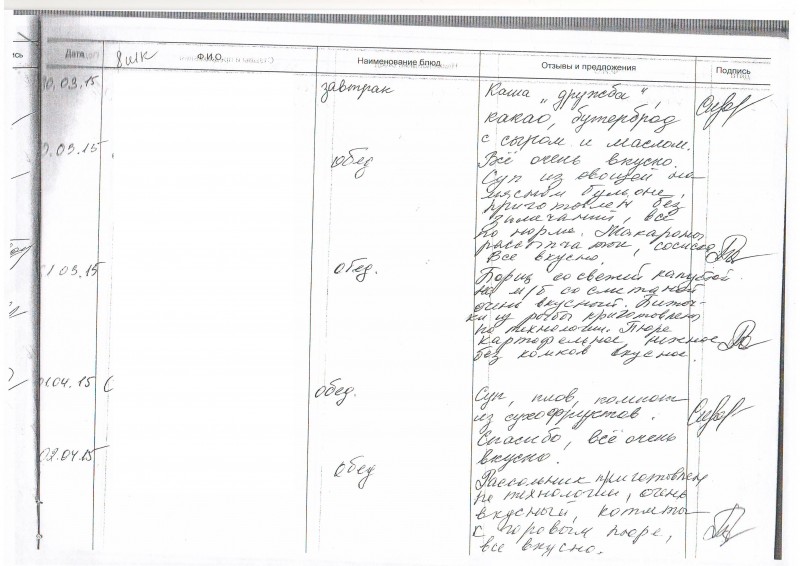 Дата 8 шк Ф.И.О. Наименование блюд Отзывы и предложения Подпись
30.03.15 завтрак Каша „дружба",
какао, бутерброд
с сыром и маслом.
Всё очень вкусно.
обед Суп из овощей на
мясном бульоне,
приготовлен без
замечаний, всё
по норме. Макароны
рассыпчатые, сосиска
Все вкусно.
31.03.15 обед. Борщ со свежей капустой
на м/б со сметаной
очень вкусный. Биточ-
ки из рыбы приготовлены
по технологии. Пюре
картофельное нежное
без комков вкусное.
01.04.15 обед. Суп, плов, компот
из сухофруктов.
Спасибо, всё очень
вкусно.
02.04.15 обед Рассольник приготовлен
по технологии, очень
вкусный, котлеты
с гороховым пюре,
все вкусно.